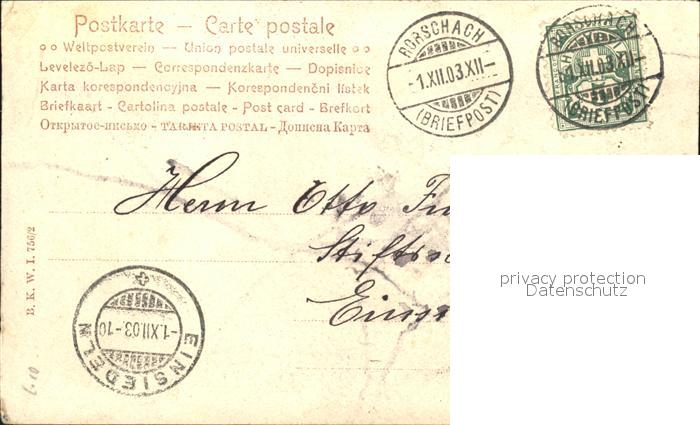 Postkarte — Carte postale
Weltpostverein — Union postale universelle
Levelező-Lap — Correspondenzkarte — Dopisnice
Karta korespondencyjna — Korespondenční lístek
Briefkaart - Cartolina postale - Post card - Brefkort
Открытое-письмо - TARJETA POSTAL - Дописна Карта
RORSCHACH
-1.XII.03.XII-
(BRIEFPOST)
RORSCHACH
-1.XII.03.XII-
(BRIEFPOST)
Herrn Otto
B. K. W. I. 756/2
privacy protection
Datenschutz
-1.XII.03.-10
EINSIEDELN